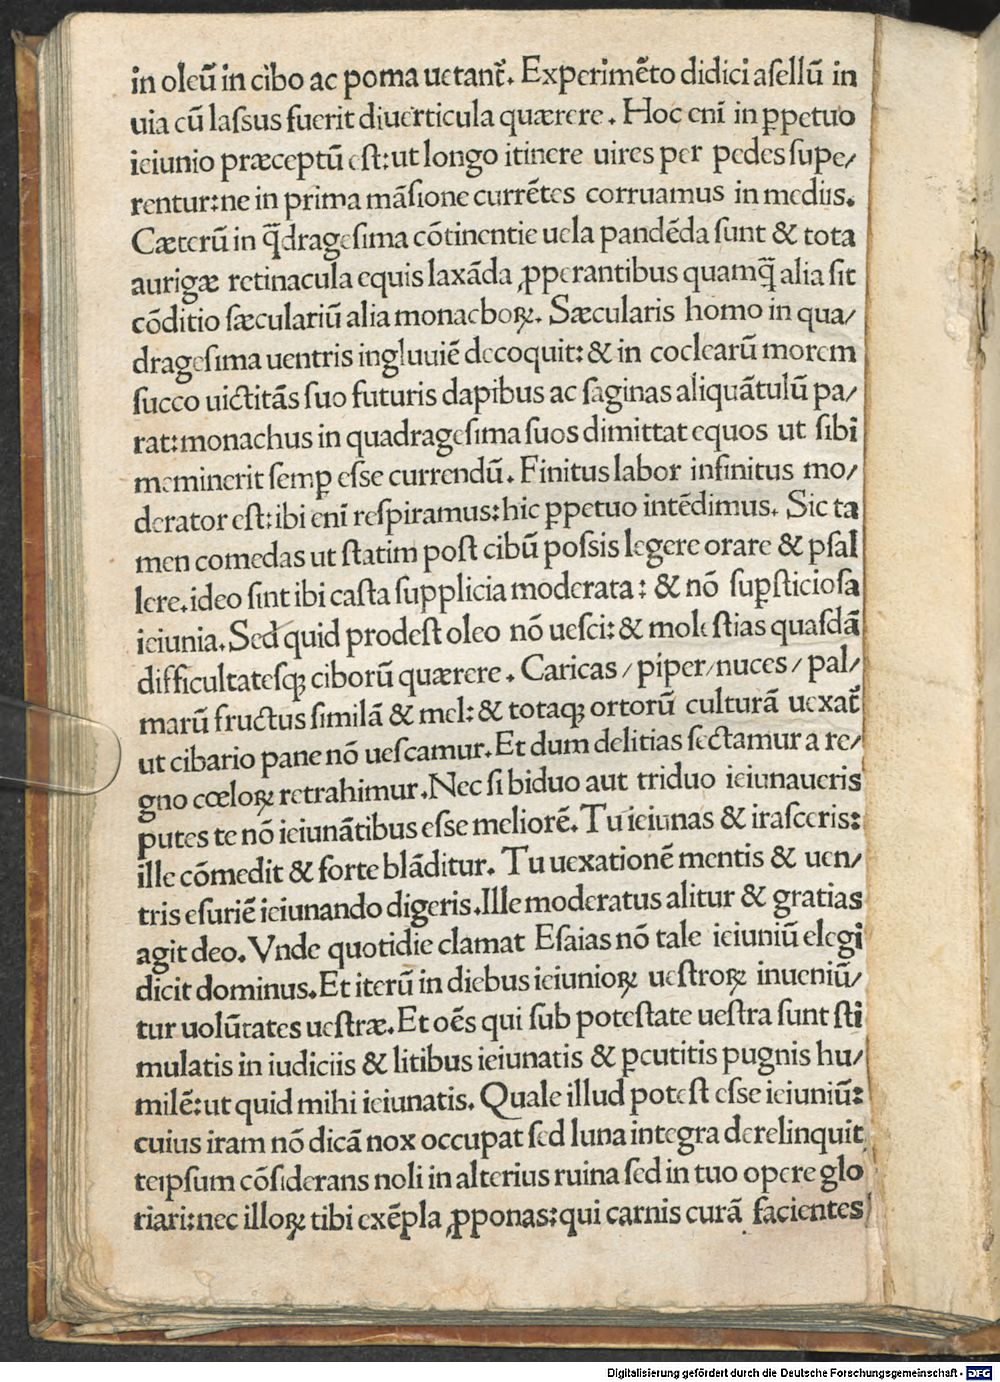 in oleū in cibo ac poma uetant᷑. Experimēto didici asellū in
uia cū lassus fuerit diuerticula quærere. Hoc eni in ꝑpetuo
ieiunio præceptū est: ut longo itinere uires per pedes supe/
rentur: ne in prima māsione currētes corruamus in mediis.
Cæterū in q̄dragesima cōtinentie uela pandēda sunt & tota
aurigæ retinacula equis laxāda ꝓperantibus quamq̄ alia sit
cōditio sæculariū alia monachoꝝ. Sæcularis homo in qua/
dragesima uentris ingluuiē decoquit: & in coclearū morem
succo uictitās suo futuris dapibus ac saginas aliquātulū pa/
rat: monachus in quadragesima suos dimittat equos ut sibi
meminerit semꝑ esse currendū. Finitus labor infinitus mo/
derator est: ibi eni respiramus: hic ꝑpetuo intēdimus. Sic ta
men comedas ut statim post cibū possis legere orare & psal
lere. ideo sint ibi casta supplicia moderata: & nō suꝑsticiosa
ieiunia. Sed quid prodest oleo nō uesci: & molestias quasdā
difficultatesqꝫ ciborū quærere. Caricas / piper / nuces / pal/
marū fructus similā & mel: & totaqꝫ ortorū culturā uexat᷑
ut cibario pane nō uescamur. Et dum delitias sectamur a re/
gno cœloꝝ retrahimur. Nec si biduo aut triduo ieiunaueris
putes te nō ieiunātibus esse meliorē. Tu ieiunas & irasceris:
ille cōmedit & forte blāditur. Tu uexationē mentis & uen/
tris esuriē ieiunando digeris. Ille moderatus alitur & gratias
agit deo. Vnde quotidie clamat Esaias nō tale ieiuniū elegi
dicit dominus. Et iterū in diebus ieiunioꝝ uestroꝝ inueniū/
tur uolūtates uestræ. Et oēs qui sub potestate uestra sunt sti
mulatis in iudiciis & litibus ieiunatis & ꝑcutitis pugnis hu/
milē: ut quid mihi ieiunatis. Quale illud potest esse ieiuniū:
cuius iram nō dicā nox occupat sed luna integra derelinquit
teipsum cōsiderans noli in alterius ruina sed in tuo opere glo
riari: nec illoꝝ tibi exēpla ꝓponas: qui carnis curā facientes
Digitalisierung gefördert durch die Deutsche Forschungsgemeinschaft - DFG